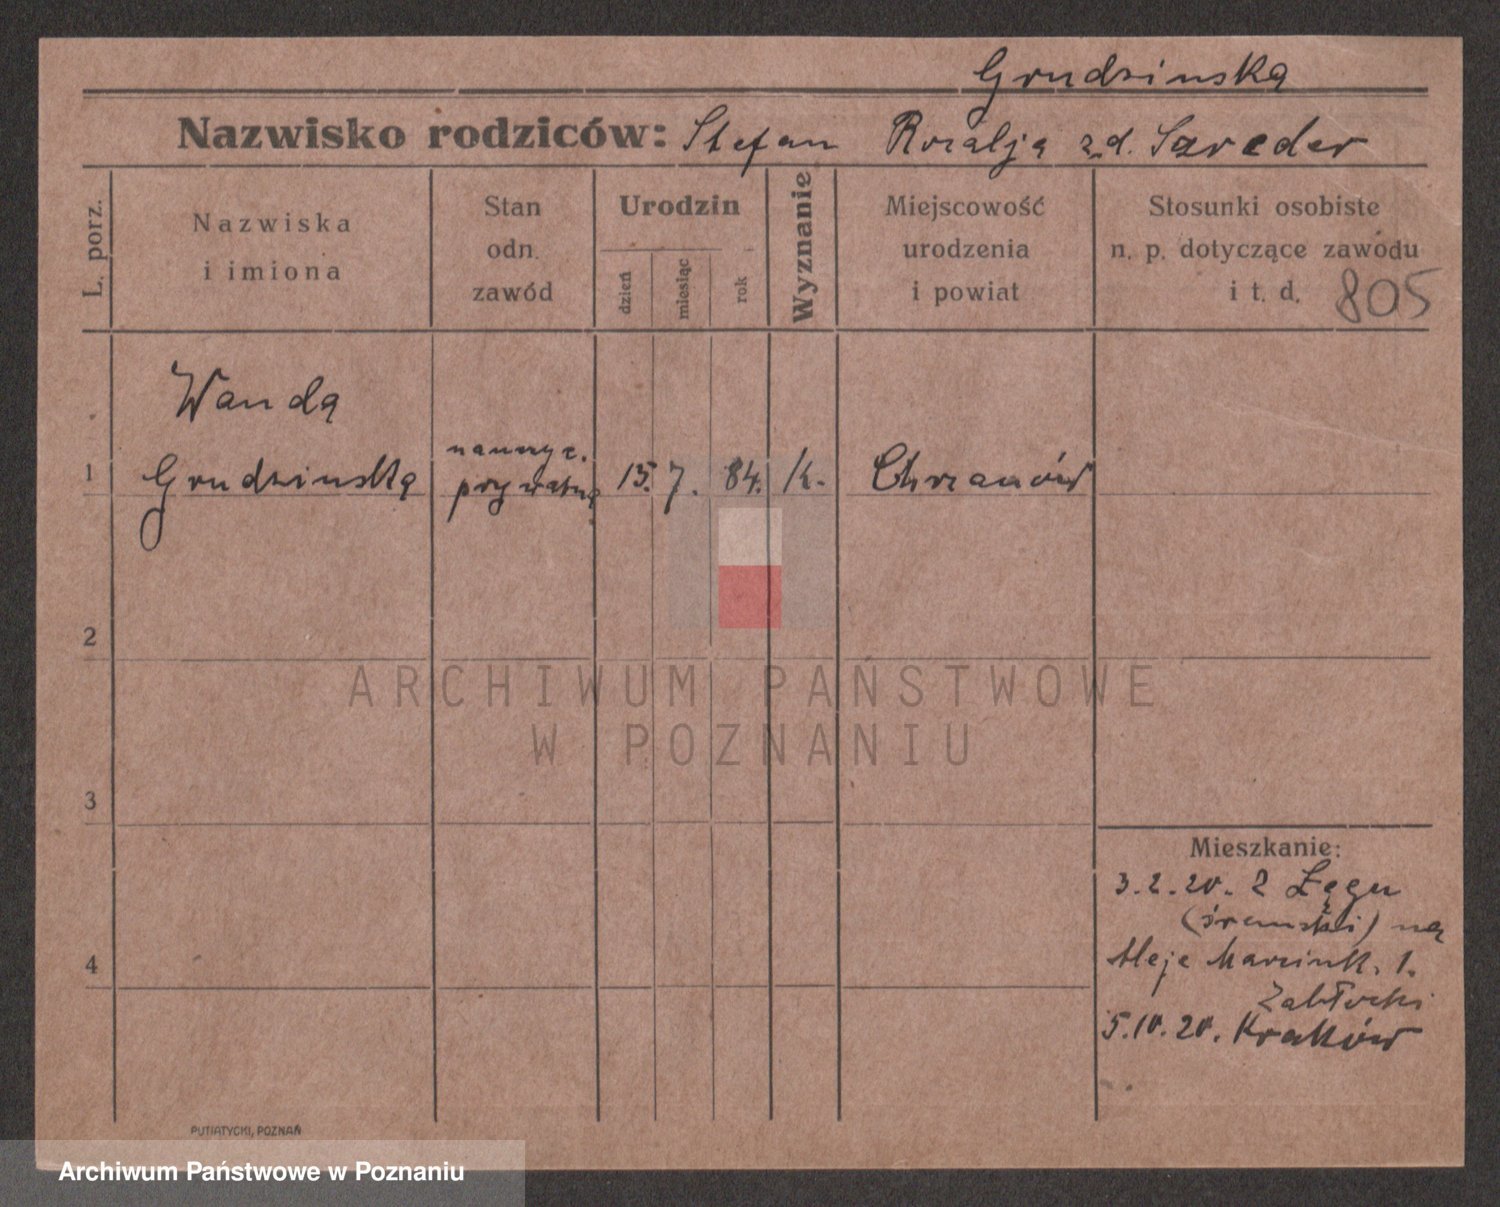 Grudzinska
Nazwisko rodziców: Stefan Rozalja z d. Szreder
L. porz.
Nazwiska
i imiona
Stan
odn.
zawód
Urodzin
dzień
miesiąc
rok
Wyznanie
Miejscowość
urodzenia
i powiat
Stosunki osobiste
n. p. dotyczące zawodu
i t. d. 805
Wanda
1 Grudzinska
nauczyc.
prywatna
15. 7. 84. k. Chrzanów
2
ARCHIWUM PAŃSTWOWE
W POZNANIU
3
4
Mieszkanie:
3.2.20. z Łęgu
(śremski) na
Aleje Marcink. 1.
Zabłocki
5.10.20. Kraków
PUTIATYCKI, POZNAŃ
Archiwum Państwowe w Poznaniu